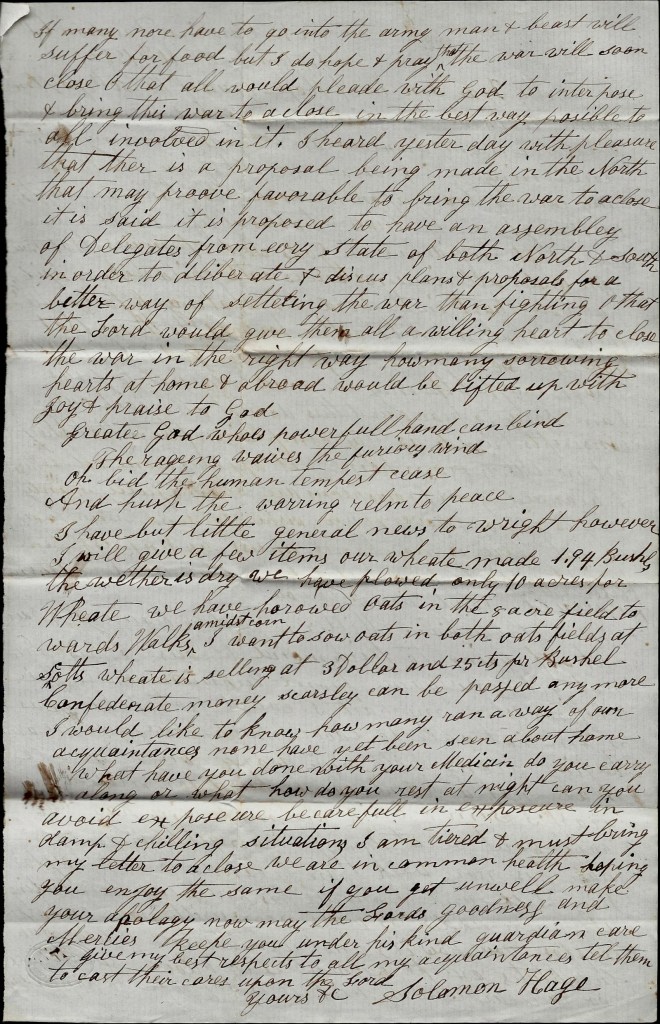 If many more have to go into the army man & beast will
suffer for food but I do hope & pray that the war will soon
close O that all would pleade with God to interpose
& bring this war to a close in the best way posible to
all involved in it. I heard yester day with pleasure
that ther is a proposal being made in the North
that may proove favorable to bring the war to a close
it is said it is proposed to have an assembley
of Delegates from evry State of both North & South
in order to dliberate & discus plans & proposals for a
better way of setteling the war than fighting O that
the Lord would give them all a willing heart to close
the war in the right way how many sorrowing
hearts at home & abroad would be lifted up with
Joy & praise to God
Greate God whoes powerfull hand can bind
The rageing waives the furious wind
O bid the human tempest cease
And hush the warring relm to peace
I have but little general news to wright however
I will give a few items our wheate made 194 Bushls
the wether is dry we have plowed only 10 acres for
Wheate we have horowed Oats in the 8 acre field to
wards Walks amidst corn I want to sow oats in both oats fields at
Fotts wheate is selling at 3 Dollar and 25 cts pr Bushel
Confederate money scarsley can be passed any more
I would like to know how many ran a way of our
acquaintances none have yet been seen about home
What have you done with your Medicin do you carry
along or what how do you rest at night can you
avoid exposeure be carefull in exposeure in
damp & chilling situations I am tiered & must bring
my letter to a close we are in common health hoping
you enjoy the same if you get unwell make
your apology now may the Lords goodness and
Mercies keepe you under his kind guardian care
give my best respects to all my acquaintances tel them
to cast their cares upon the Lord
Yours &c Solomon Hage